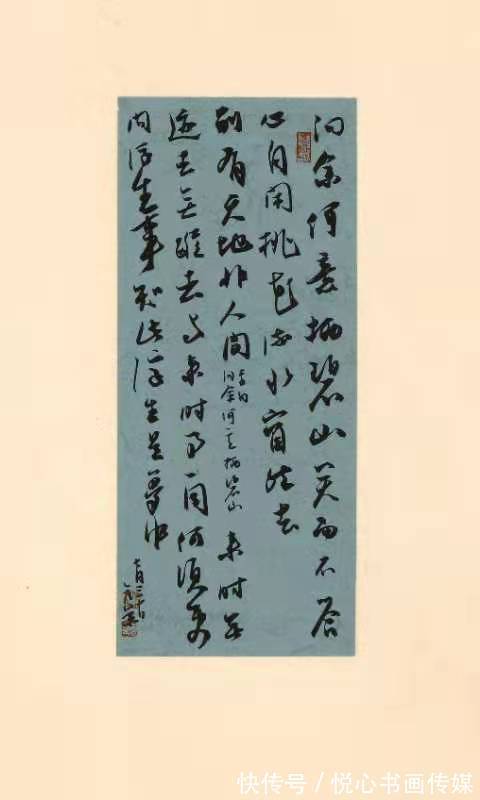 问余何意栖碧山笑而不答
心自闲桃花流水窅然去
别有天地非人间
李白
问余何意栖碧山
来时无
迹去无踪去与来时事一同何须更
问浮生事只此浮生是梦中
快传号/悦心书画传媒